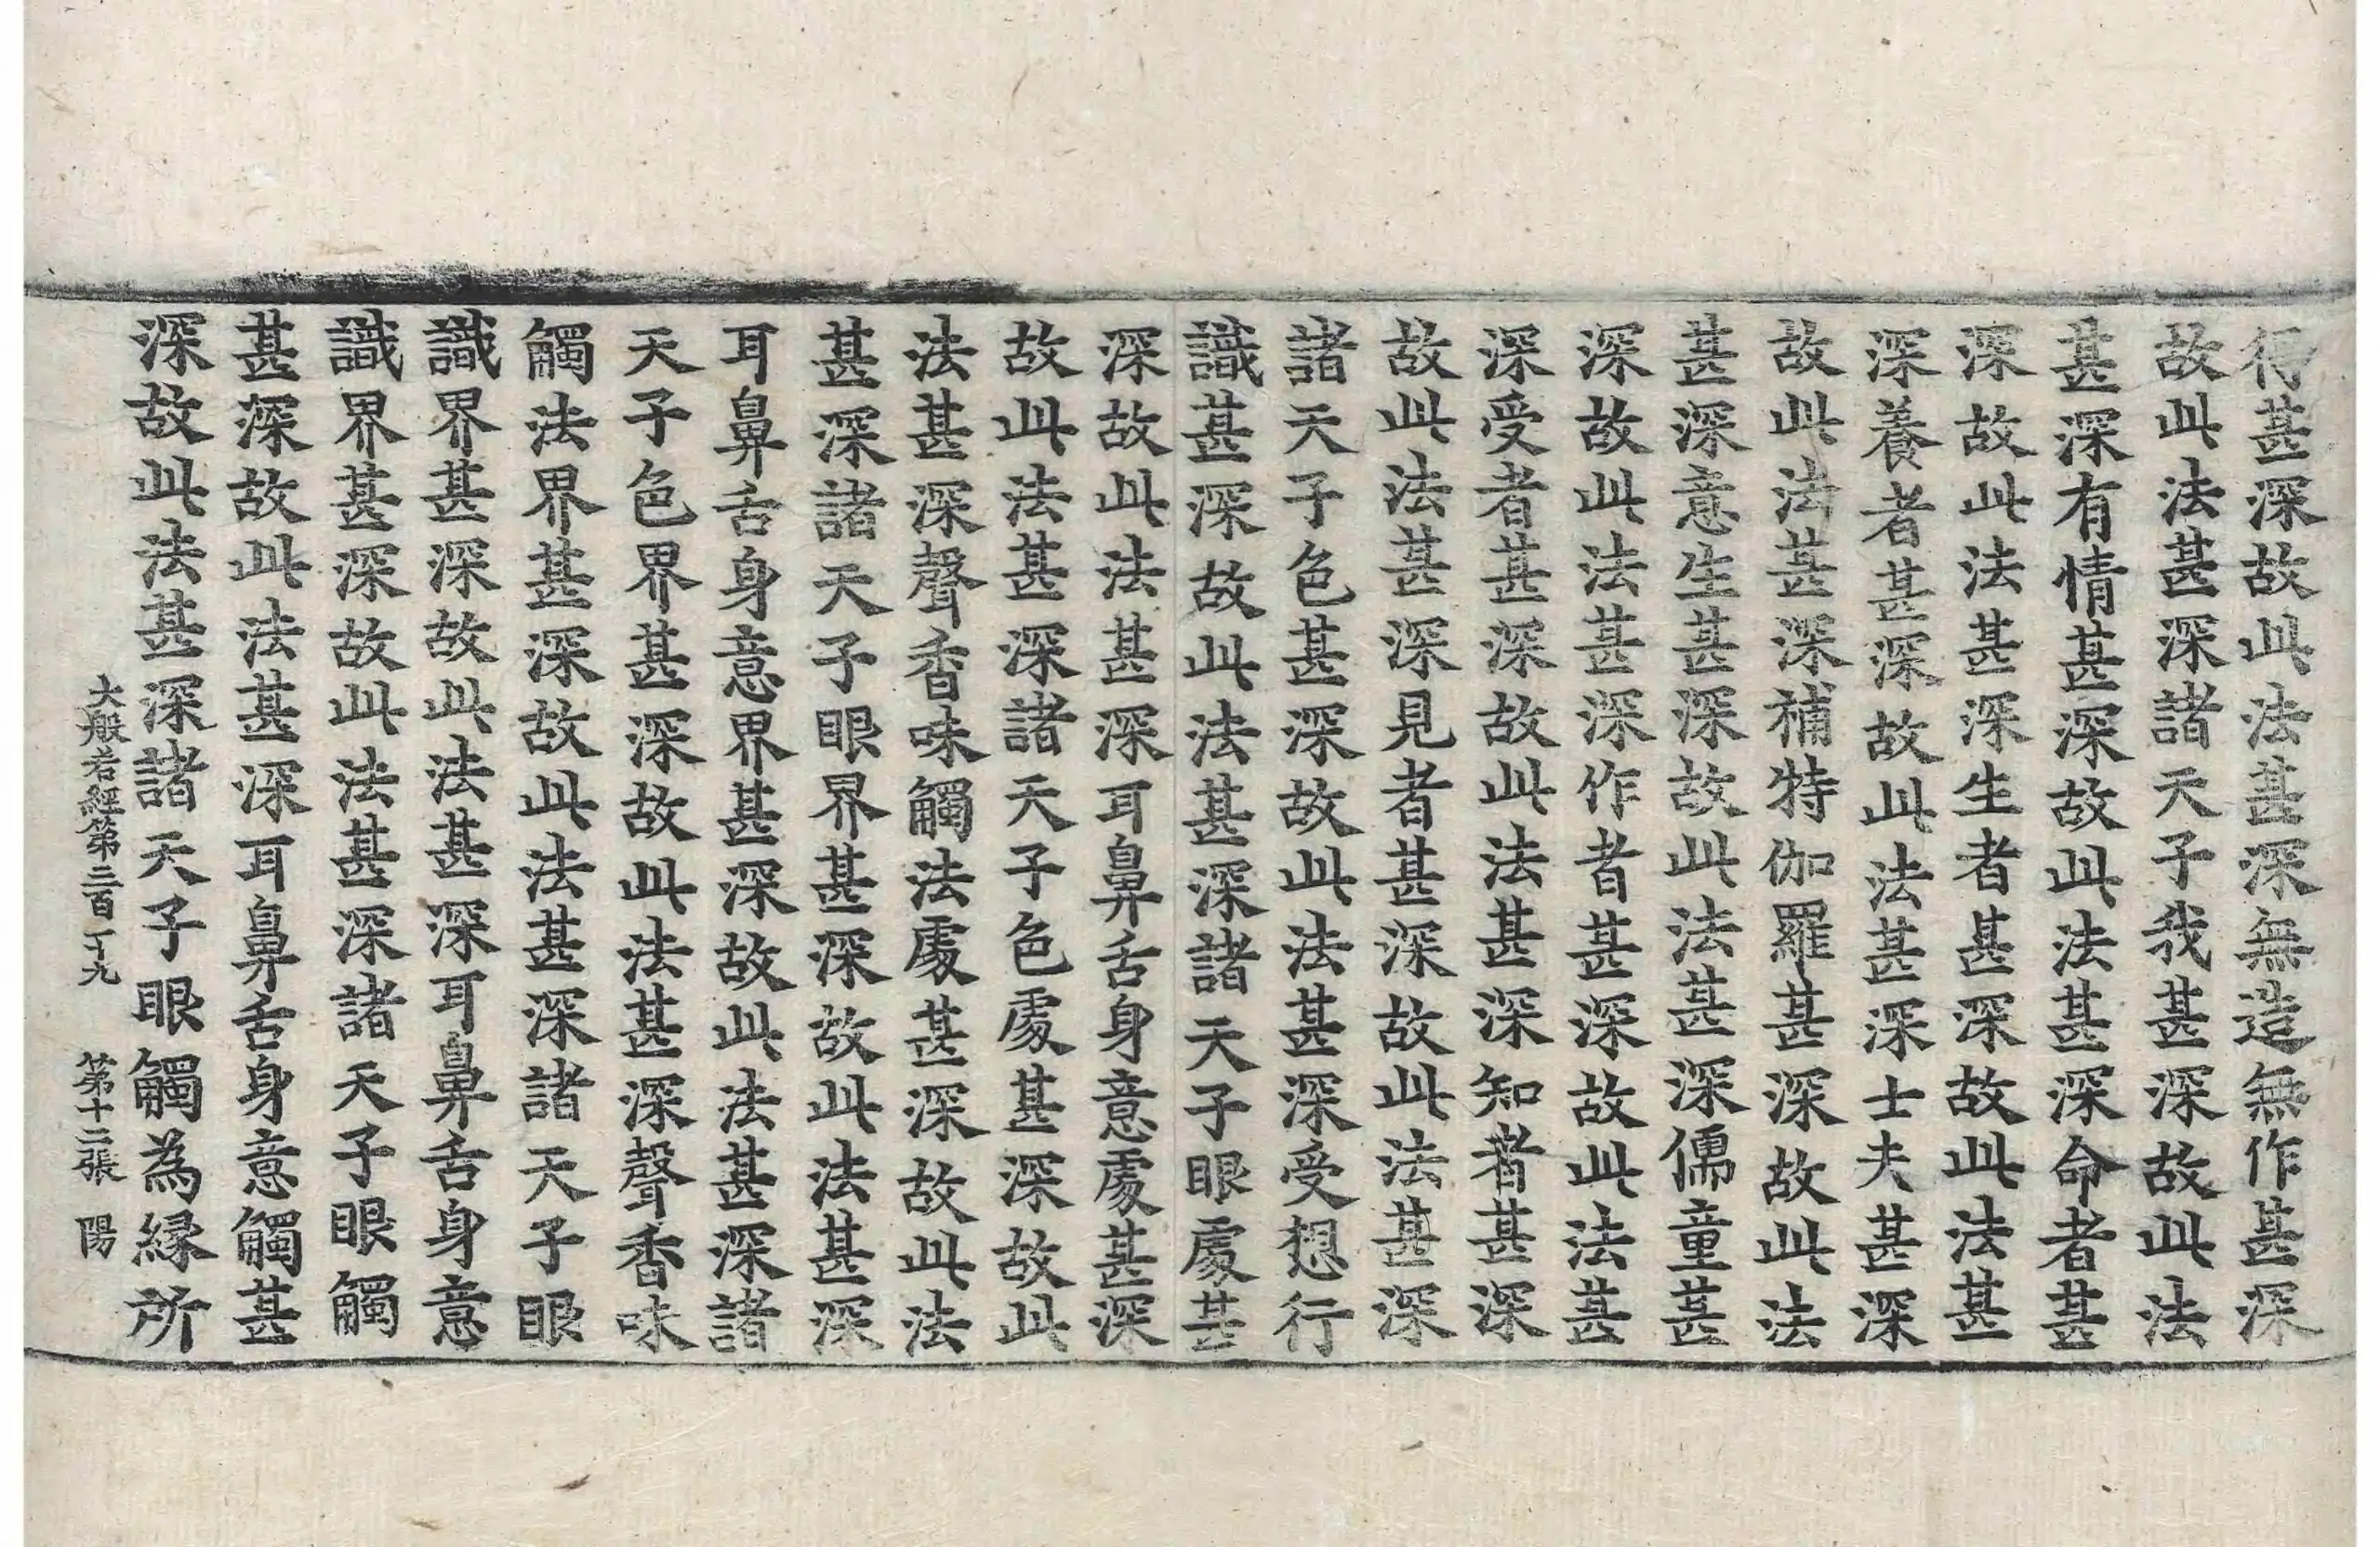 得甚深故此法甚深無造無作甚深
故此法甚深諸天子我甚深故此法
甚深有情甚深故此法甚深命者甚
深故此法甚深生者甚深故此法甚
深養者甚深故此法甚深士夫甚深
故此法甚深補特伽羅甚深故此法
甚深意生甚深故此法甚深儒童甚
深故此法甚深作者甚深故此法甚
深受者甚深故此法甚深知者甚深
故此法甚深見者甚深故此法甚深
諸天子色甚深故此法甚深受想行
識甚深故此法甚深諸天子眼處甚
深故此法甚深耳鼻舌身意處甚深
故此法甚深諸天子色處甚深故此
法甚深聲香味觸法處甚深故此法
甚深諸天子眼界甚深故此法甚深
耳鼻舌身意界甚深故此法甚深諸
天子色界甚深故此法甚深聲香味
觸法界甚深故此法甚深諸天子眼
識界甚深故此法甚深耳鼻舌身意
識界甚深故此法甚深諸天子眼觸
甚深故此法甚深耳鼻舌身意觸甚
深故此法甚深諸天子眼觸為緣所
大般若經第三百一十九 第十二張 陽